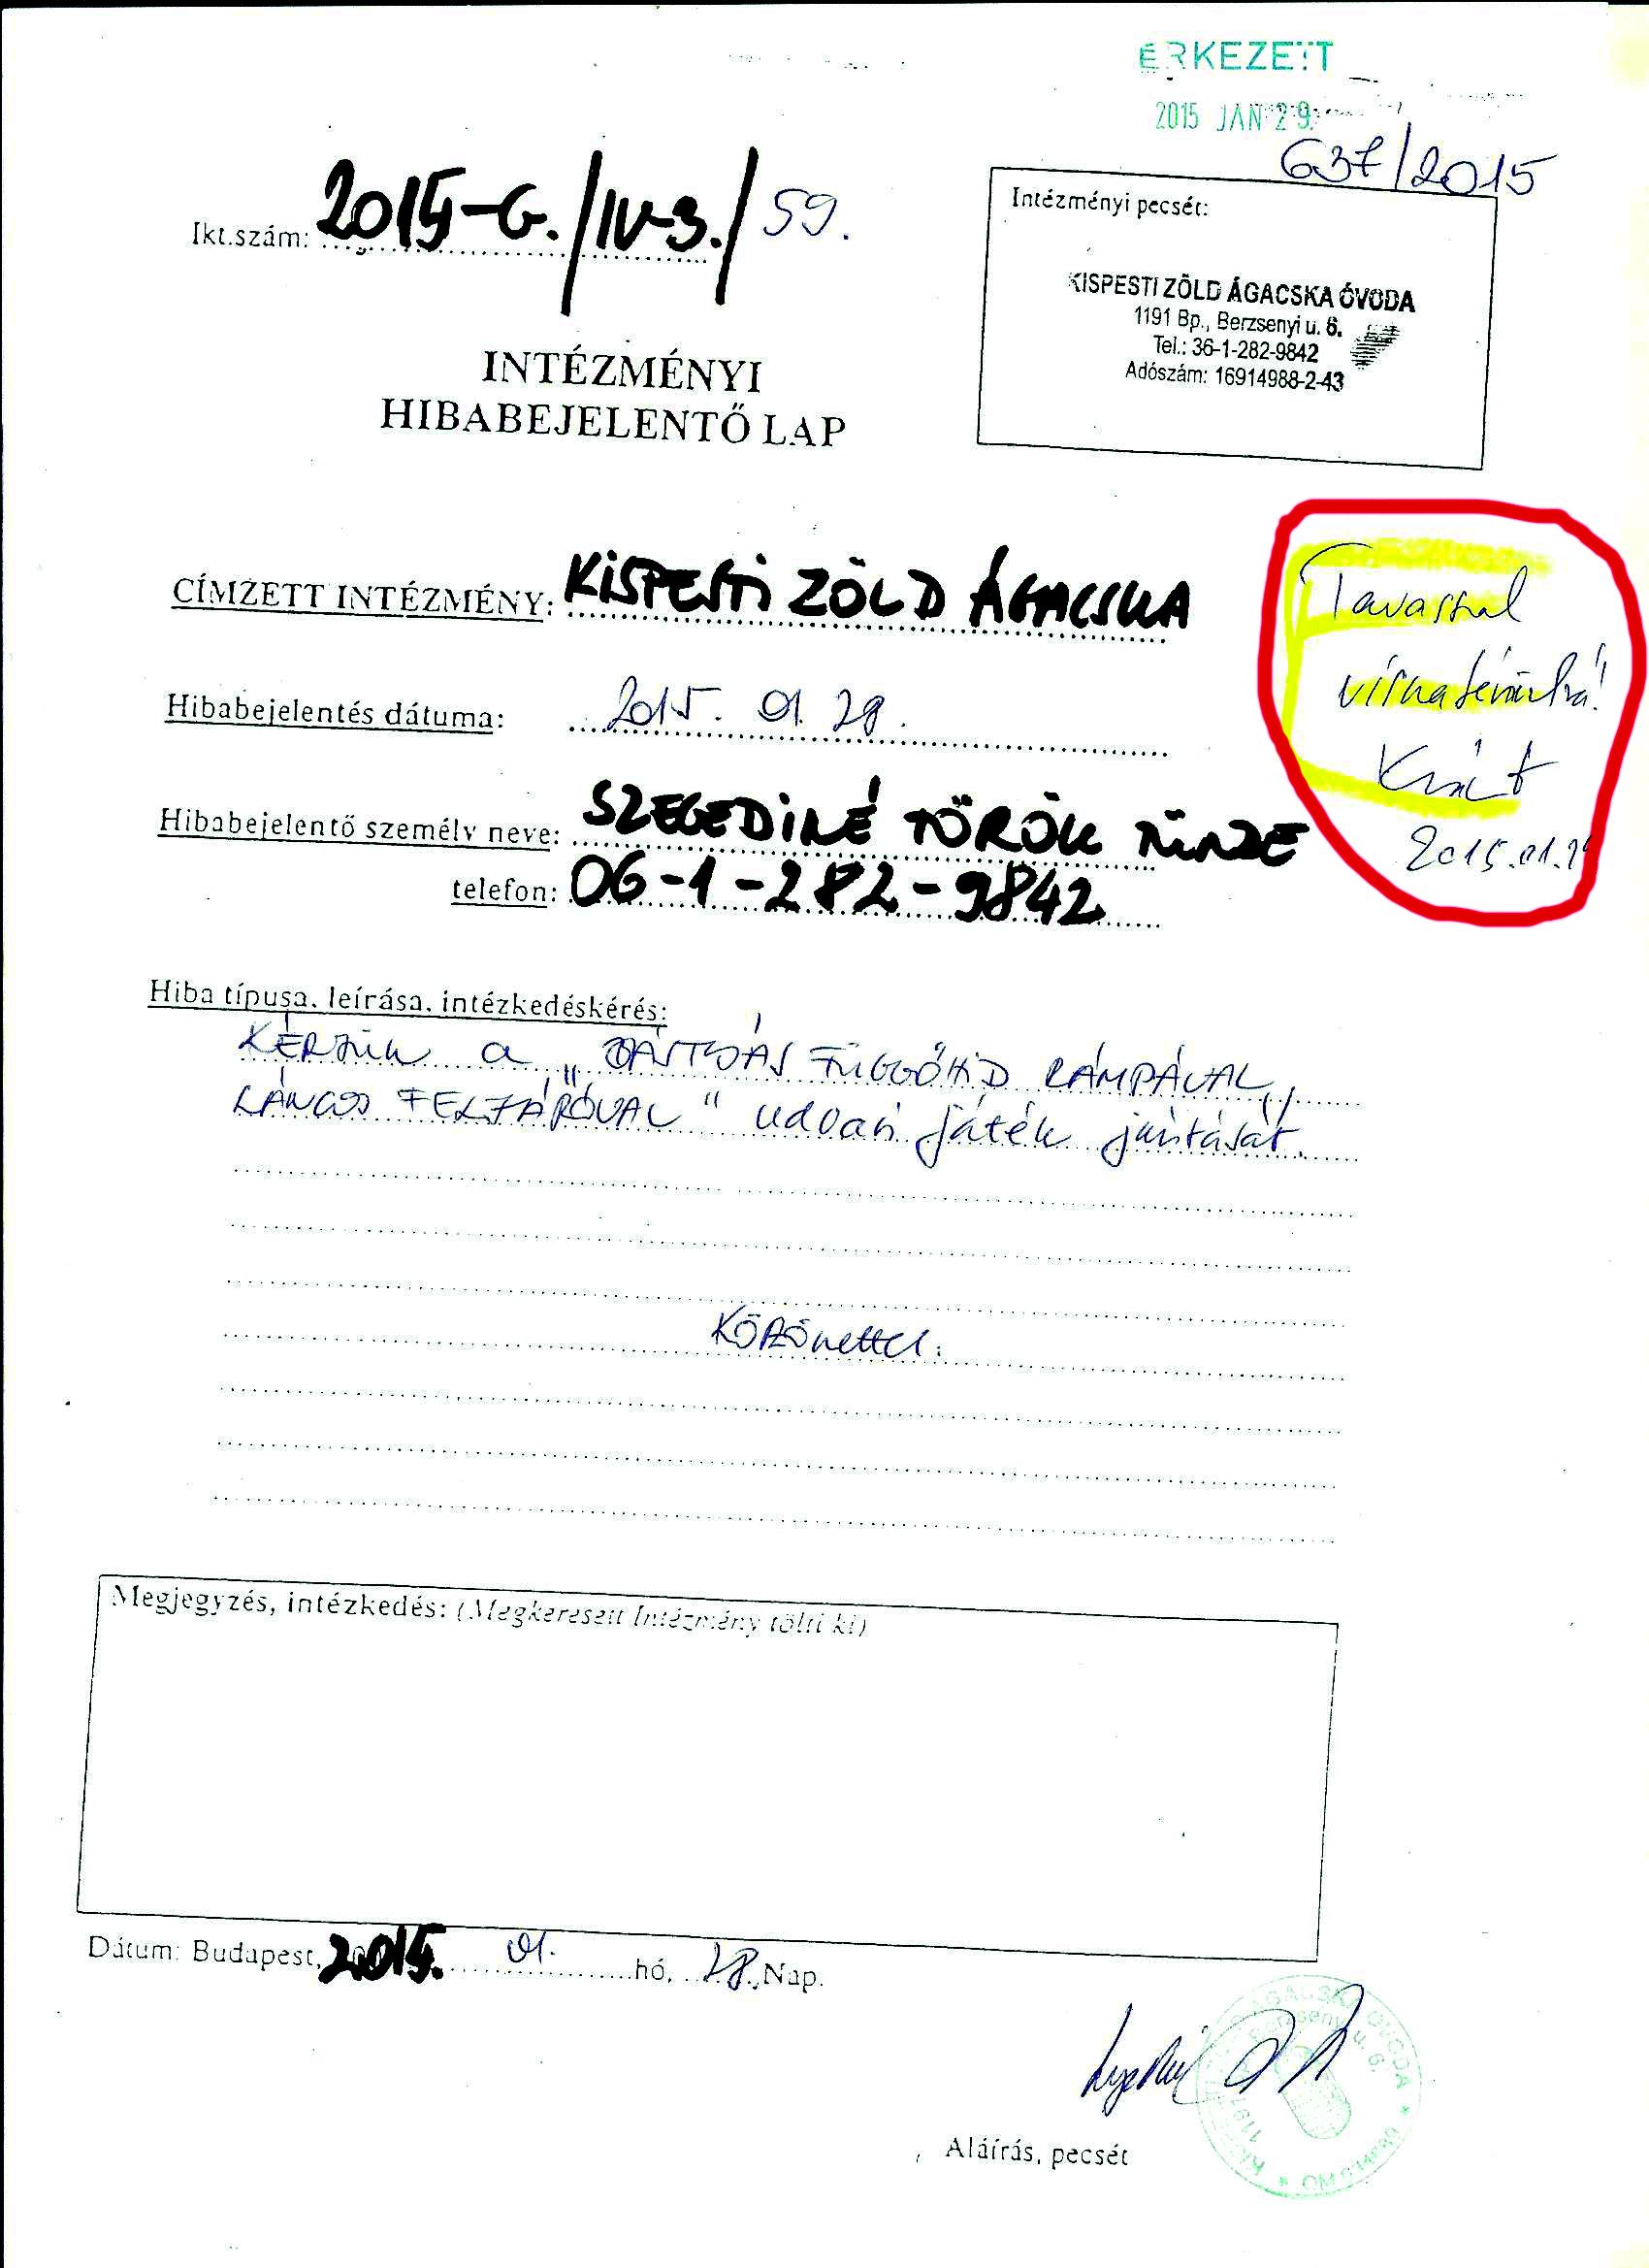 ÉRKEZETT
2015 JAN 29.
637/2015
Ikt.szám: 2015-G./IV-3./59.
Intézményi pecsét:
KISPESTI ZÖLD ÁGACSKA ÓVODA
1191 Bp., Berzsenyi u. 6.
Tel.: 36-1-282-9842
Adószám: 16914988-2-43
INTÉZMÉNYI
HIBABEJELENTŐ LAP
CÍMZETT INTÉZMÉNY: KISPESTI ZÖLD ÁGACSKA
Tavasszal
Hibabejelentés dátuma: 2015. 01. 28.
Hibabejelentő személy neve: SZEGEDINÉ TÖRÖK TÜNDE
2015.01.
telefon: 06-1-282-9842
Hiba típusa, leírása, intézkedéskérés:
KÉRJÜK a „BÁSTYÁS FÜGGŐHÍD RÁMPÁVAL,
LÁNCOS FELJÁRÓVAL" udvari játék javítását.
KÖSZÖNettel:
Megjegyzés, intézkedés: (Megkeresett Intézmény tölti ki)
Dátum: Budapest, 2015. 01. hó, 28. Nap.
Aláírás, pecsét